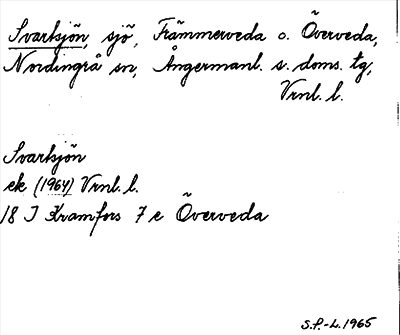 Svartsjön, sjö, Främmerveda o. Överveda,
Nordingrå sn, Ångermanl. s. doms. tg,
Vrnl. l.
Svartsjön
ek (1964) Vrnl. l.
18 I Kramfors 7 e Överveda
S.P.-L. 1965